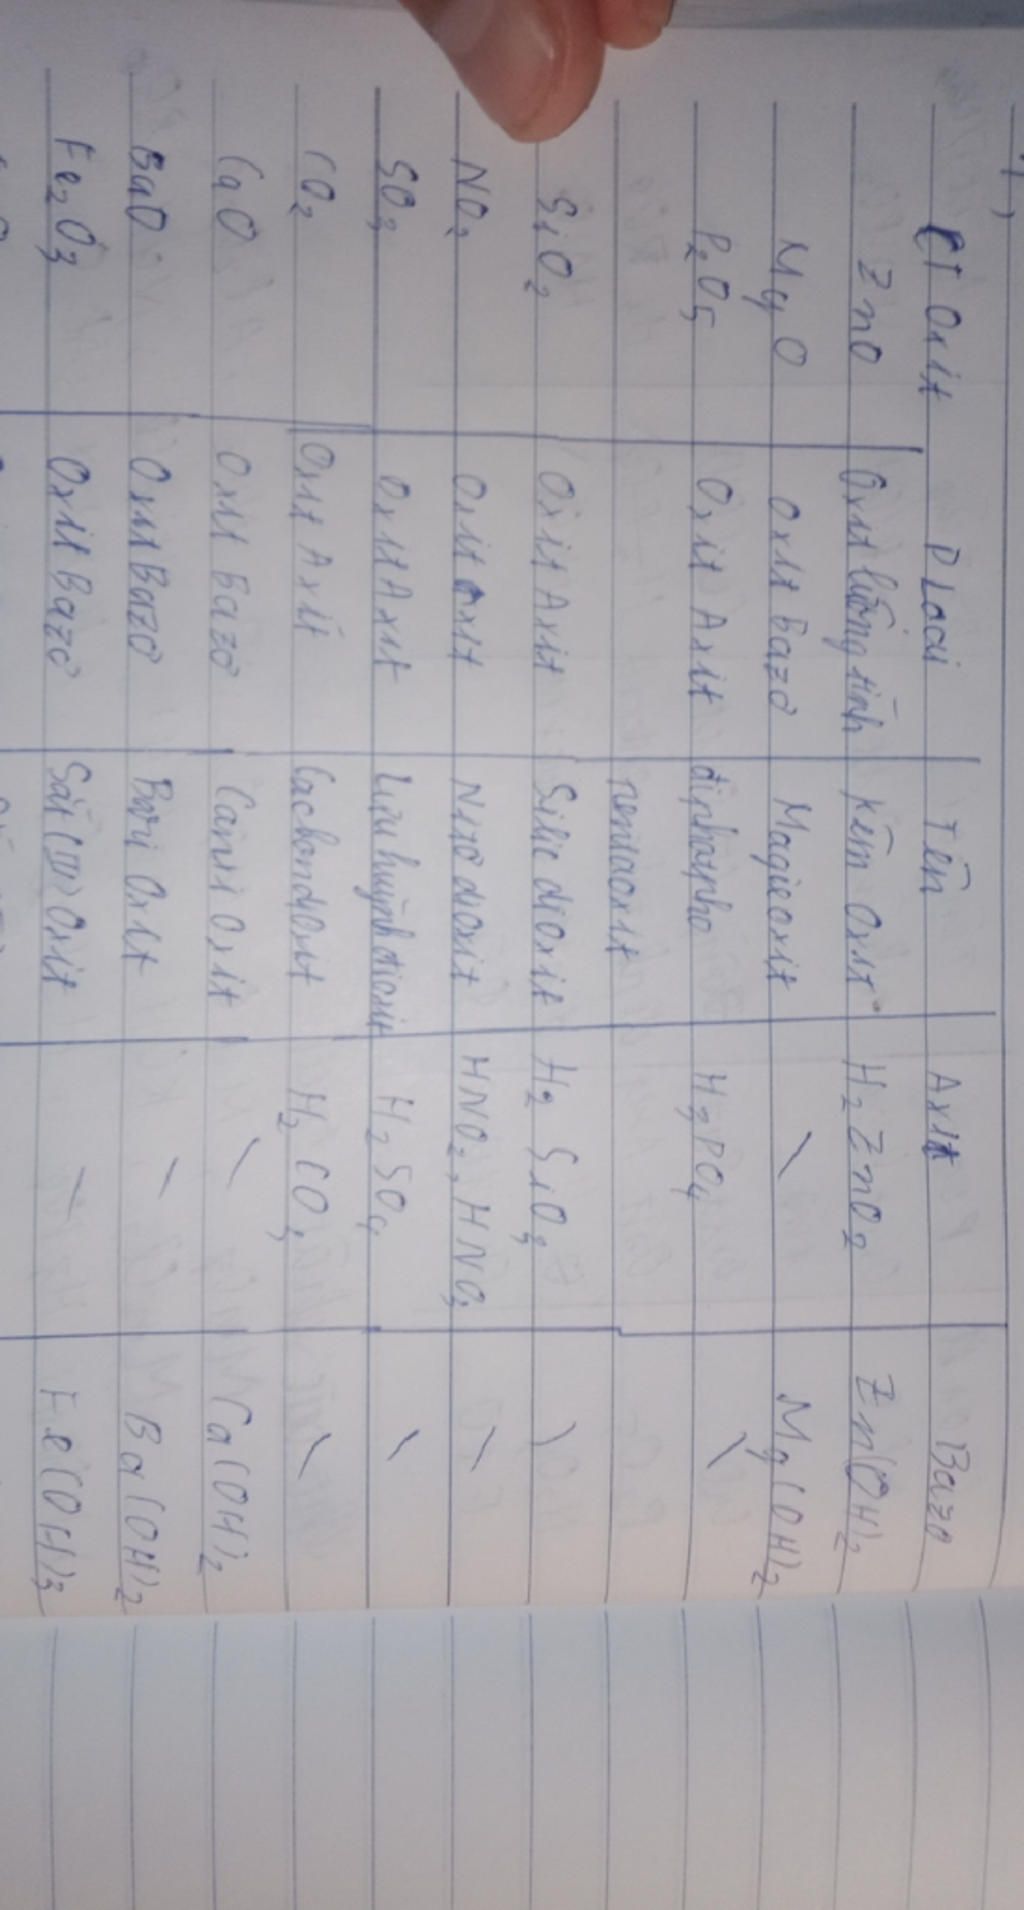 CT Oxit P Loại Tên Axit Bazơ
ZnO Oxit lưỡng tính Kẽm Oxit H2ZnO2 Zn(OH)2
MgO Oxit Bazơ Magieoxit \ Mg(OH)2
P2O5 Oxit Axit điphotpho H3PO4 \
pentaoxit
SiO2 Oxit Axit Silic đioxit H2SiO3 \
NO2 Oxit axit Nitơ đioxit HNO2, HNO3 \
SO3 Oxit Axit Lưu huỳnh đioxit H2SO4 \
CO2 Oxit Axit Cacbonđioxit H2CO3 \
CaO Oxit Bazơ Canxi Oxit \ Ca(OH)2
BaO Oxit Bazơ Bari Oxit \ Ba(OH)2
Fe2O3 Oxit Bazơ Sắt (III) Oxit \ Fe(OH)3